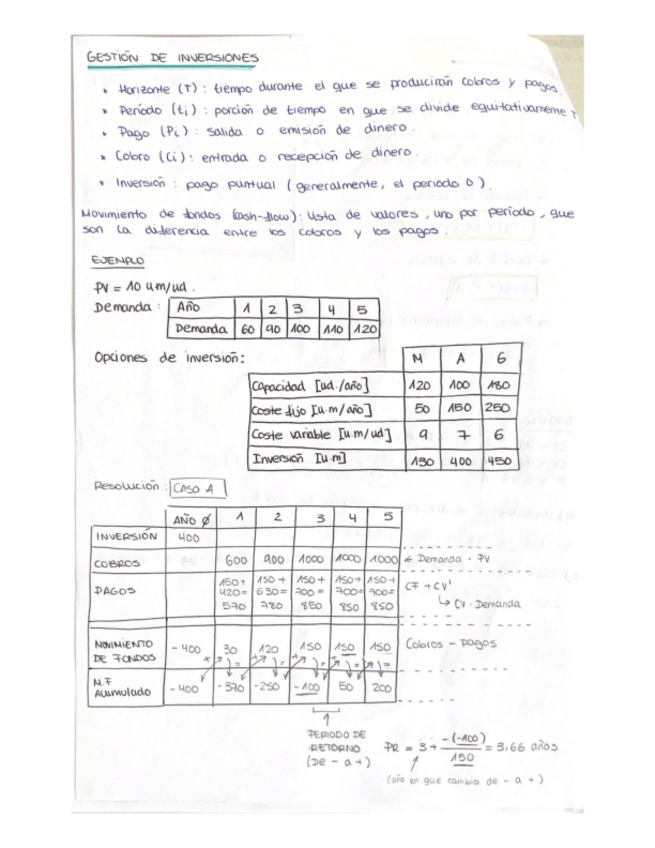 GESTIÓN DE INVERSIONES
• Horizonte (T) : tiempo durante el que se producirán cobros y pagos.
• Período (ti) : porción de tiempo en que se divide equitativamente T
• Pago (Pi) : salida o emisión de dinero.
• Cobro (Ci) : entrada o recepción de dinero.
• Inversión : pago puntual (generalmente, el periodo 0).
Movimiento de fondos (cash-flow) : lista de valores, uno por período, que
son la diferencia entre los cobros y los pagos.
EJEMPLO
PV = 10 u.m/ud.
Demanda : Año 1 2 3 4 5
Demanda 60 90 100 110 120
Opciones de inversión: M A G
Capacidad [ud./año] 120 100 180
Coste fijo [u.m/año] 50 150 250
Coste variable [u.m/ud] 9 7 6
Inversión [u.m] 150 400 450
Resolución : CASO A
AÑO Ø 1 2 3 4 5
INVERSIÓN 400
COBROS 600 900 1000 1000 1000 ← Demanda · PV
PAGOS 150+ 150+ 150+ 150+ 150+ CF + CV'
420= 630= 700= 700= 700= ↳ CV · Demanda
570 780 850 850 850
MOVIMIENTO - 400 30 120 150 150 150 Cobros - pagos
DE FONDOS
M.F - 400 - 370 - 250 - 100 50 200
Acumulado
PERIODO DE
RETORNO
(De - a +)
PR = 3 + -(-100) / 150 = 3,66 años
(año en que cambia de - a +)